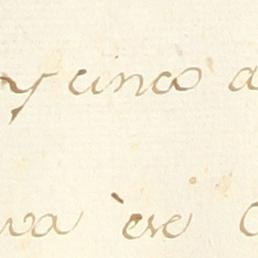 y cinco a
va ese